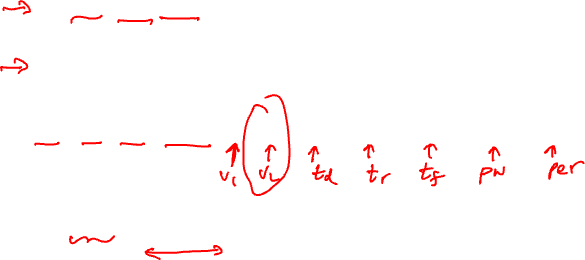 v₁ v₂ td tr tf pw per